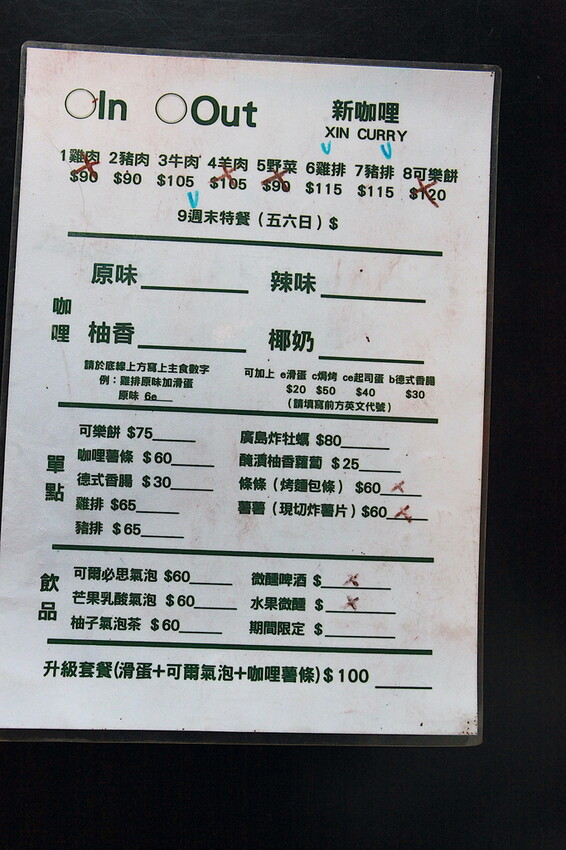 In Out 新咖哩
XIN CURRY
1雞肉 2豬肉 3牛肉 4羊肉 5野菜 6雞排 7豬排 8可樂餅
$90 $90 $105 $105 $90 $115 $115 $120
9週末特餐（五六日）$
咖哩
原味 辣味
柚香 椰奶
請於底線上方寫上主食數字
例：雞排原味加滑蛋
原味 6e
可加上 e滑蛋 c焗烤 ce起司蛋 b德式香腸
$20 $50 $40 $30
（請填寫前方英文代號）
單點
可樂餅 $75 廣島炸牡蠣 $80
咖哩薯條 $60 醃漬柚香蘿蔔 $25
德式香腸 $30 條條（烤麵包條） $60
雞排 $65 薯薯（現切炸薯片）$60
豬排 $65
飲品
可爾必思氣泡 $60 微醺啤酒 $
芒果乳酸氣泡 $60 水果微醺 $
柚子氣泡茶 $60 期間限定 $
升級套餐(滑蛋+可爾氣泡+咖哩薯條)$100